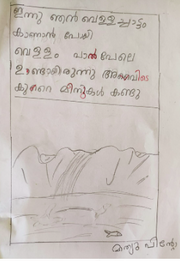 ഇന്നു ഞൻ വെള്ളച്ചാട്ടം
കാണാൻ പോയി
വെള്ളം പാൻപേലെ
ഉണ്ടായിരുന്നു അവിടെ
കുറെ മീനുകൾ കണ്ടു
മിത്യു പിന്റോ